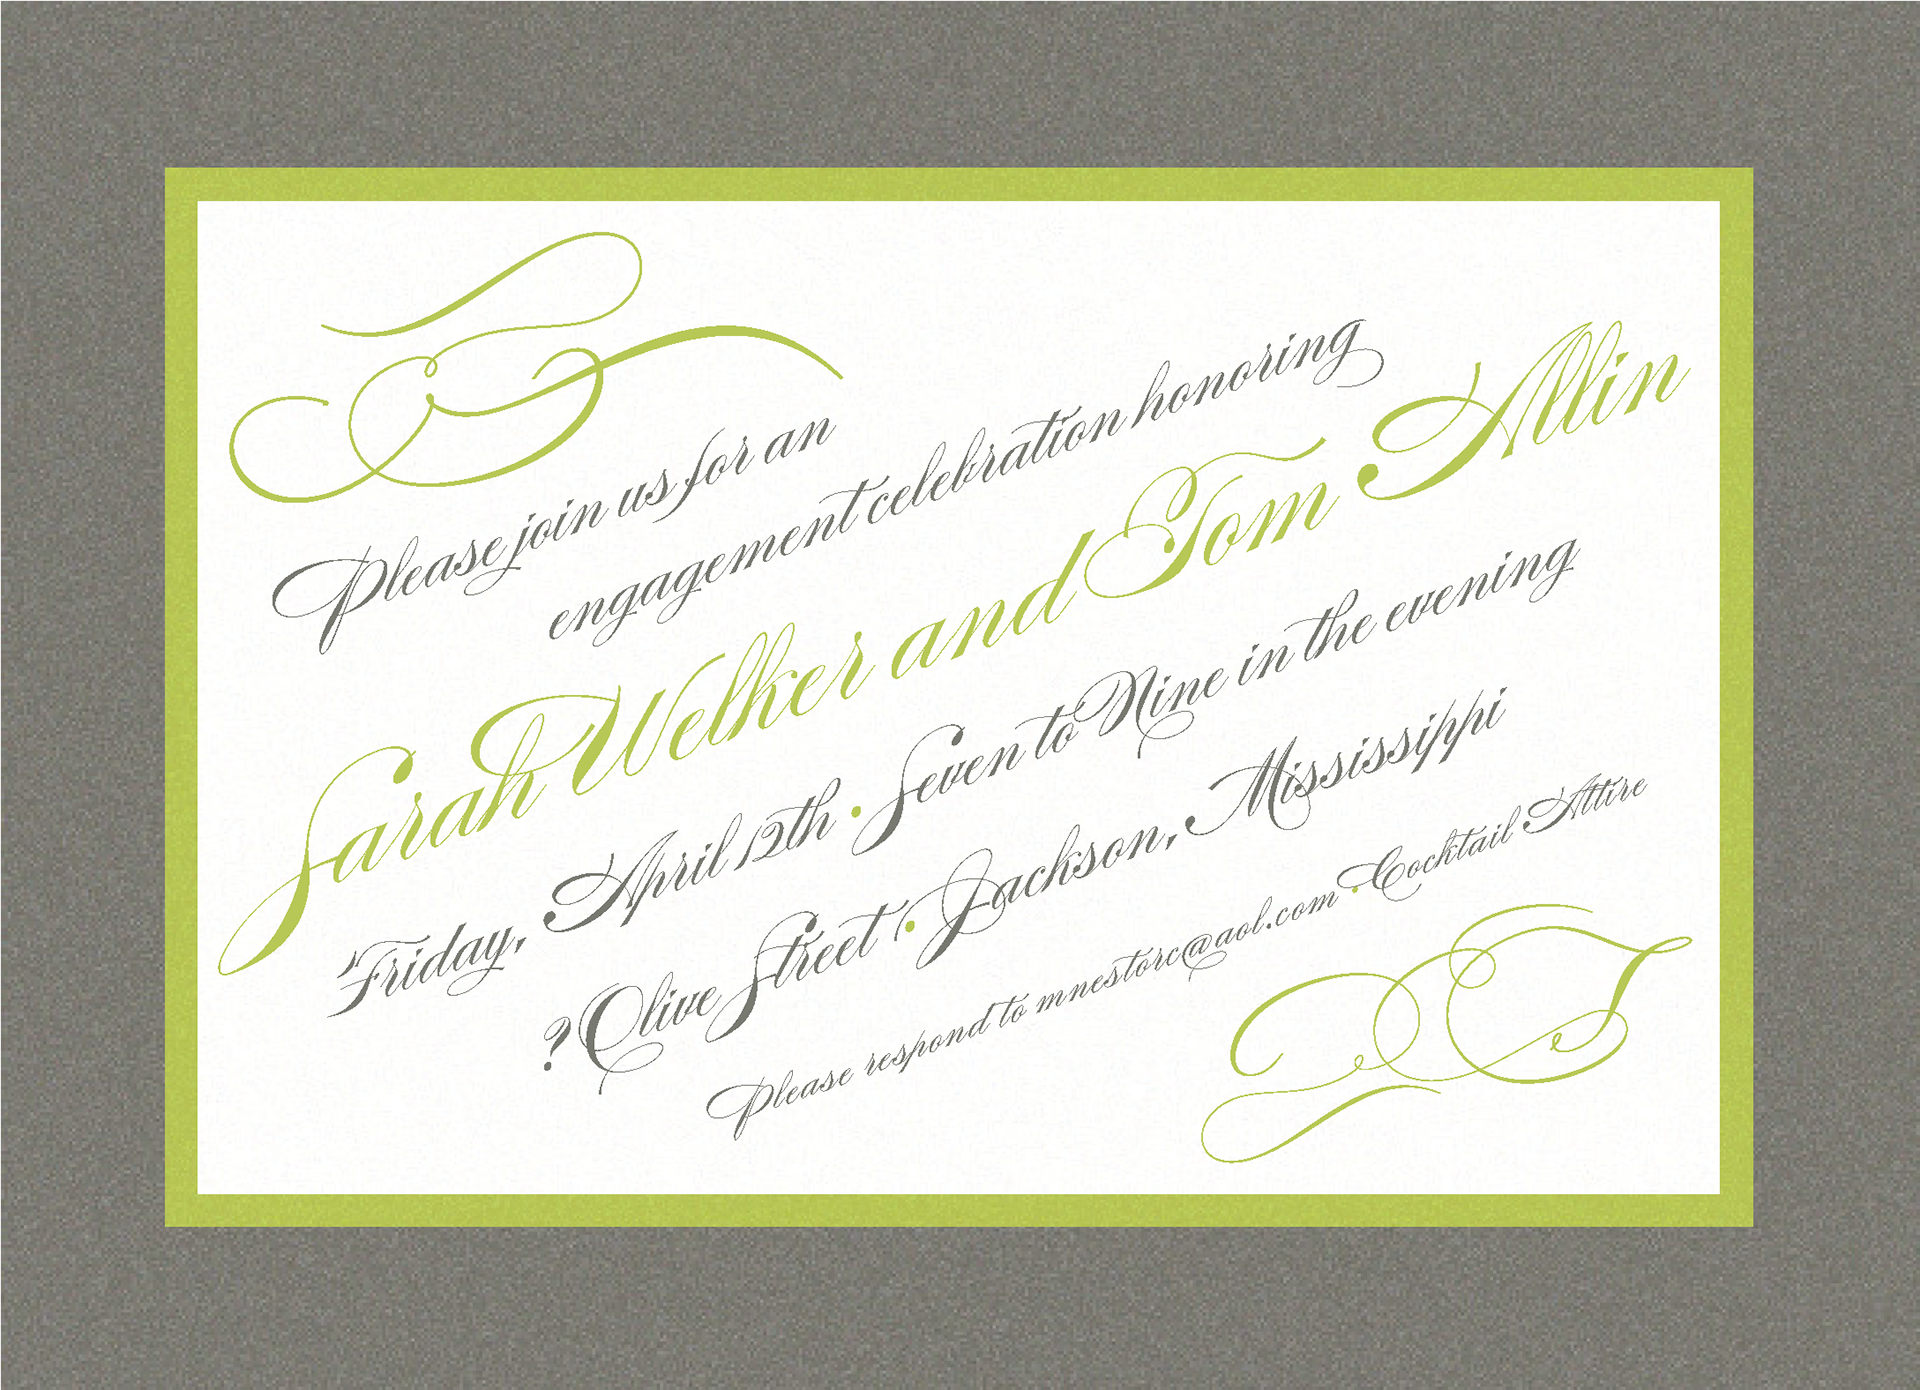 Please join us for an
engagement celebration honoring
Sarah Welker and Tom Allin
Friday, April 12th • Seven to Nine in the evening
? Olive Street • Jackson, Mississippi
Please respond to mnestorc@aol.com • Cocktail Attire